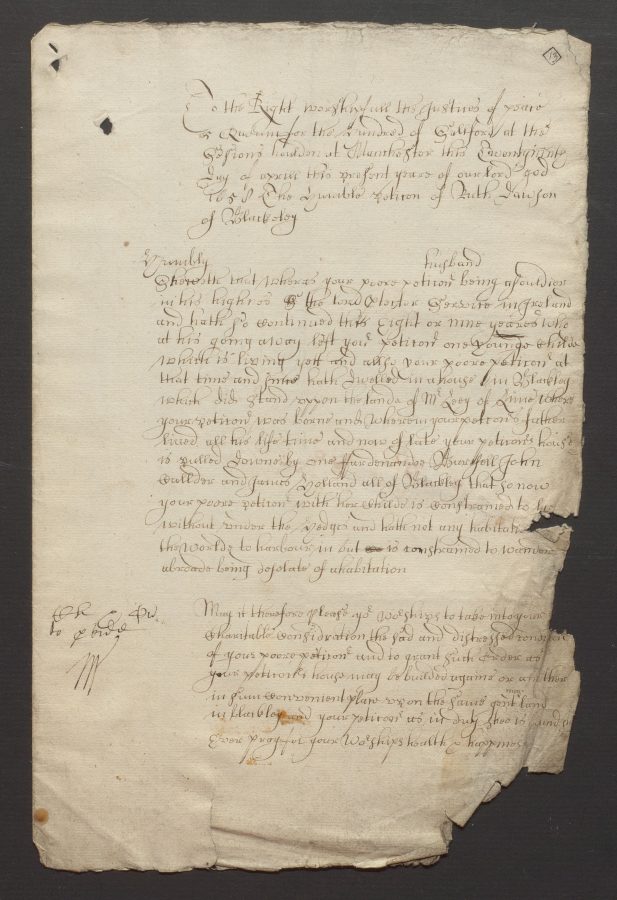 To the Right worshipfull the Justices of peace
& Quorum for the hundred of Salford at the
Sessions houlden at Manchester this Twenty
day of aprill this present yeare of our lord god
1658 The humble peticon of Ruth Dawson
of Blackeley
Humbly husband
Sheweth that wheras your poore peticonrs being a souldier
in his highnes the lord Protector Service in Ireland
and hath so continued this Eight or nine yeares who
at his going away left your peticonr one younge Childe
which is living yett and allso your poore peticonr at
that time and since hath dwelled in a house in Blackley
which did stand uppon the lands of Mr Legh of Lime where
your peticonr was borne and wherein your peticonrs father
lived all his life time and now of late your peticonrs house
is pulled downe by one Furdenandoe Burshall John
and James Holland all of Blackley that so now
your poore peticonr with her Childe is constrained to lye
without under the hedges and hath not any habitati
the Worlde to harbour in but is constrained to wander
abroade being desolate of a habitation
May it therefore please yor Worships to take into your
Charitable Considration the sad and distressed
of your poore peticonr and to grant such order as
your peticonrs house may be builded againe or another
in sum convenient place upon the same gent land
in blackley and your peticonr as in duty shee is
Ever pray for your Worships health & happines
to provide